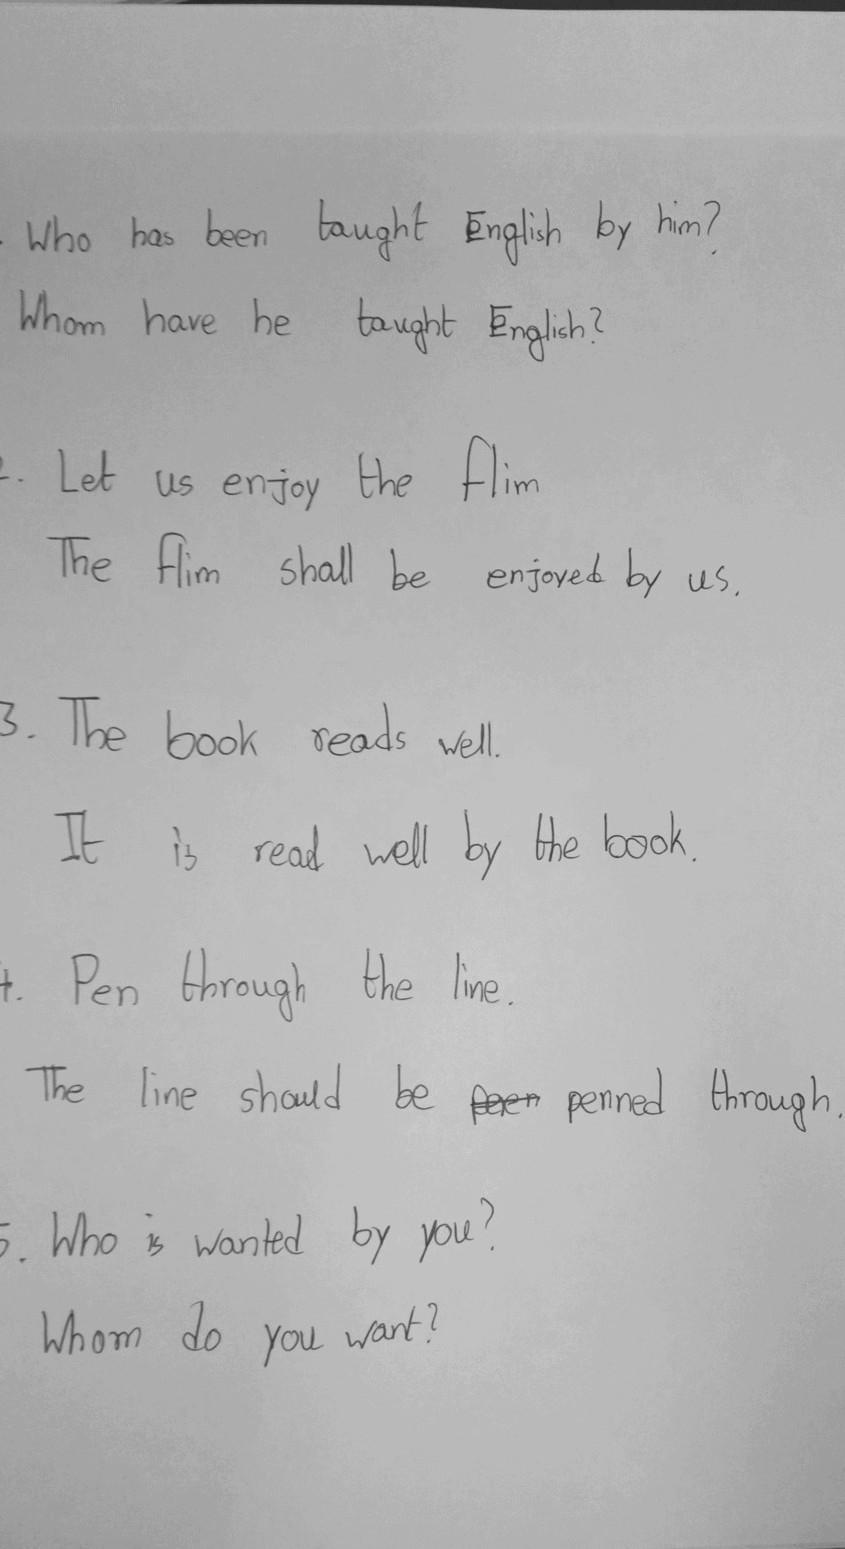 . Who has been taught English by him?
Whom have he taught English?
2. Let us enjoy the flim
The flim shall be enjoyed by us.
3. The book reads well.
It is read well by the book.
4. Pen through the line.
The line should be peen penned through.
5. Who is wanted by you?
Whom do you want?